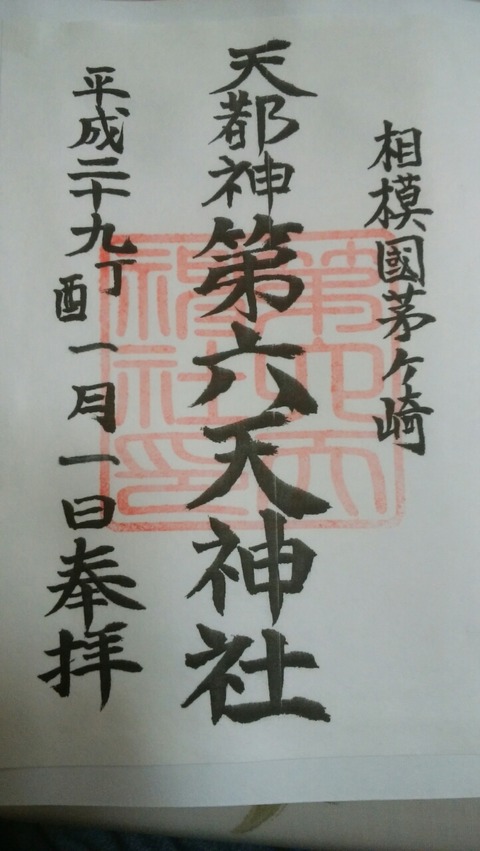 相模國茅ケ崎
天都神第六天神社
平成二十九丁酉一月一日奉拝
第六天神社印